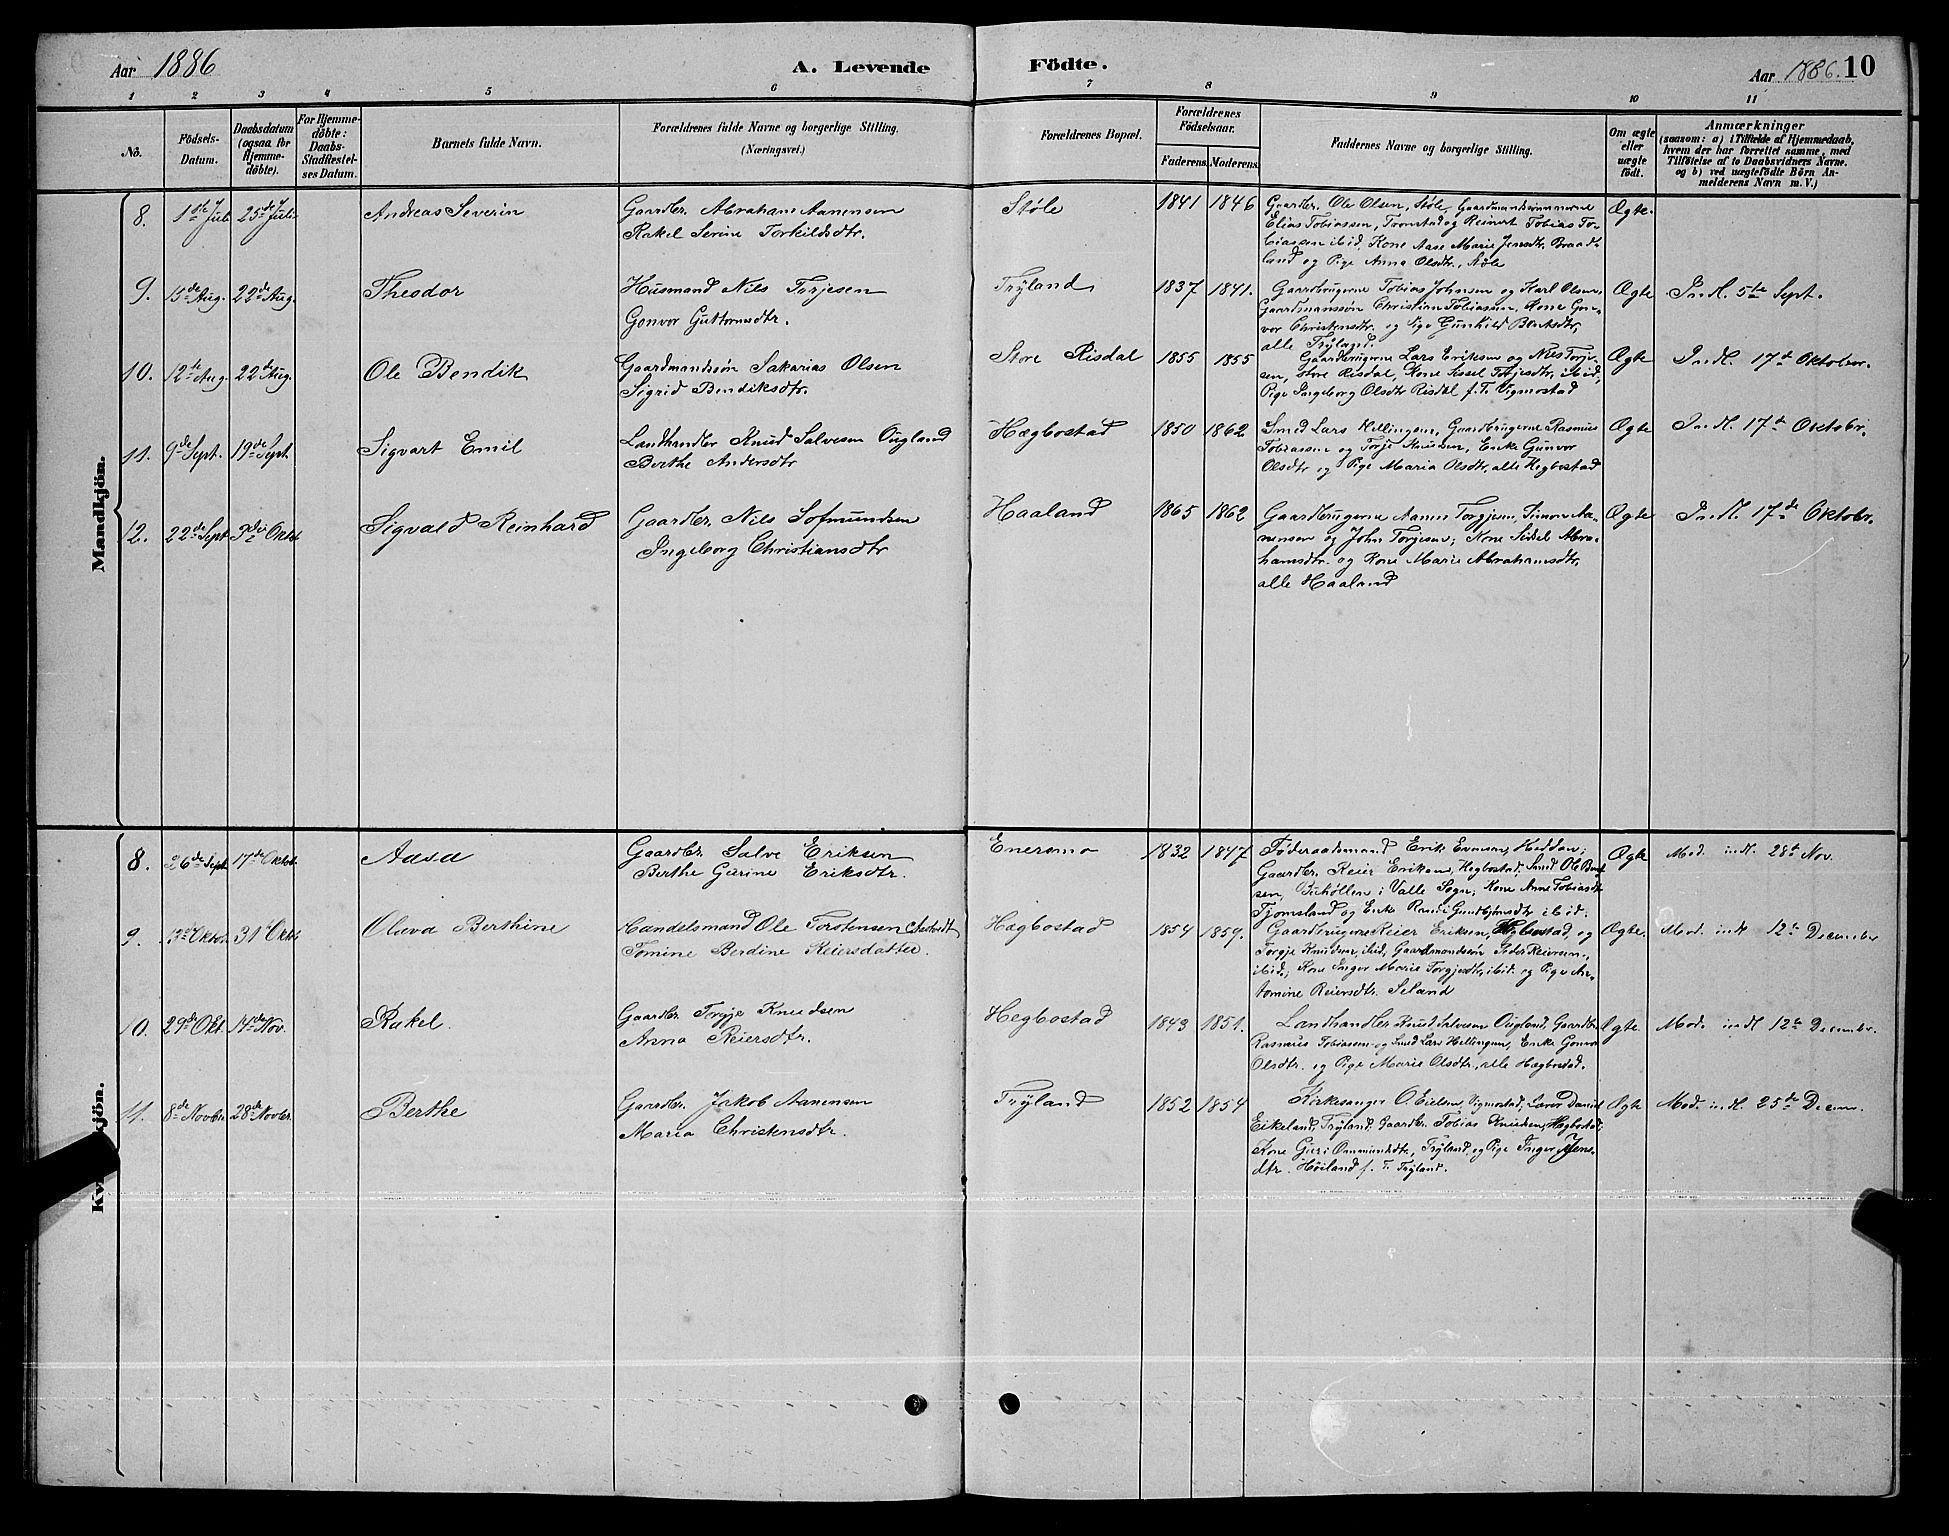 Aar 1886
A. Levende
Födte.
Aar 1886. 10
1 2 3 4 5 6 7 8 9 10 11
No.
Födsels-
Datum.
Daabsdatum
(ogsaa for
Hjemme-
döbte).
For Hjemme-
døbte:
Daabs-
Stadfæstel-
ses Datum.
Barnets fulde Navn.
Forældrenes fulde Navne og borgerlige Stilling.
(Næringsvei.)
Forældrenes Bopæl.
Forældrenes
Födselsaar.
Faderens.
Moderens.
Faddernes Navne og borgerlige Stilling.
Om ægte
eller
uægte
født.
Anmærkninger
(saasom: a) i Tilfælde af Hjemmedaab,
hvem der har forrettet samme, med
Tilføielse af to Daabsvidners Navne.
og b) ved uægtefødte Börn An-
melderens Navn m.V.)
Mandkjön.
8. 1ste Juli 25de Juli Andreas Severin
Gaardbr. Abraham Aanensen
Rakel Serine Torkildsdtr.
Støle 1841 1846
Gaardbr. Ole Olsen, Støle, Gaardmandssønnerne
Elias Tobiassen, Tronstad og Reinert Tobias To-
biassen ibid, Kone Aase Marie Jensdtr. Braad-
land og Pige Anna Olsdtr., Støle
Ægte.
9. 15de Aug. 22de Aug. Theodor
Husmand Nils Torjesen
Gonvor Guttormsdtr.
Trÿland 1837 1841.
Gaardbrugerne Tobias Johnsen og Karl Olsen,
Gaardmanssøn Christian Tobiassen, Kone Gon-
vor Christensdtr. og Pige Gunhild Bentsdtr.
alle Trÿland.
Ægte Indl. 5te Sept.
10. 12te Aug. 22de Aug. Ole Bendik
Gaardmandssøn Sakarias Olsen
Sigrid Bendiksdtr.
Store Risdal 1855 1855
Gaardbrugerne Lars Eriksen og Nils Torje-
sen, Store Risdal, Kone Sissel Torjesdtr, ibid,
Pige Ingeborg Olsdtr Risdal f.T. Vigmostad
Ægte Indl. 17de Oktober.
11. 9de Sept. 19de Sept. Sigvart Emil
Landhandler Knud Salvesen Ougland
Berthe Andersdtr
Hægbostad 1850 1862
Smed Lars Hellingsen, Gaardbrugerne Rasmus
Tobiassen og Torje Knudsen, Enke Gunvor
Olsdtr og Pige Maria Olsdtr, alle Hegbostad
Ægte Indl. 17de Oktobr.
12. 22de Sept 3die Oktbr Sigvald Reinhard
Gaardbr. Nils Sofmundsen
Ingeborg Christiansdtr
Haaland 1865 1862
Gaardbrugerne Aanen Torgjesen, Simon Aa-
nensen og John Torjesen; Kone Sissel Abra-
hamsdtr. og Kone Marie Abrahamsdtr,
alle Haaland
Ægte Indl. 17de Oktobr.
8. 26de Sept 17de Oktobr. Aasa
Gaardbr. Salve Eriksen
Berthe Gurine Eriksdtr.
Enersmo 1832 1847
Föderaadsmand Erik Evensen, Heddan;
Gaardbr. Reier Eriksen, Hegbostad, Smed Ole Bent
sen, i Valle Sogn; Kone Anne Tobiasdtr
Tjomsland og Enke Randi Gundbjørnsdtr ibid.
Ægte Mod. indl. 28de Nov.
9. 13de Oktbr. 31te Oktbr Olava Berthine
Handelsmand Ole Torstensen
Tomine Berdine Reiersdatter.
Hægbostad 1854 1859.
Gaardbrugerne Reier Eriksen, Hegbostad, og
Torgje Knudsen, ibid, Gaardmandssøn Peder Reiersen,
ibid; Kone Inger Marie Torgjesdtr, ibid. og Pige An-
tomine Reiersdtr. Seland
Ægte. Mod. indl 12te December
10. 29de Okt. 14de Nov. Rakel.
Gaardbr. Torgje Knudsen
Anna Reiersdtr.
Hegbostad 1843 1851.
Landhandler Knud Salvesen Ougland, Gaardbr.
Rasmus Tobiassen og Smed Lars Hellingsen, Enke Gonvor
Olsdtr. og Pige Marie Olsdtr., alle Hægbostad.
Ægte. Mod. indl 12te Decembr.
Kv kjön.
11. 8de Novbr. 28de Novbr. Berthe
Gaardbr. Jakob Aanensen
Maria Christensdtr.
Trÿland 1852 1854
Kirkesanger O. Eielsen, Vigmostad, Lærer Daniel
Eikeland, Trÿland, Gaardbr. Tobias Knudsen, Hægbostad,
Kone Guri Ommundsdtr, Trÿland, og Pige Inger Jens-
dtr. Höiland f. T. Trÿland.
Ægte Mod. indl. 25de Decem.